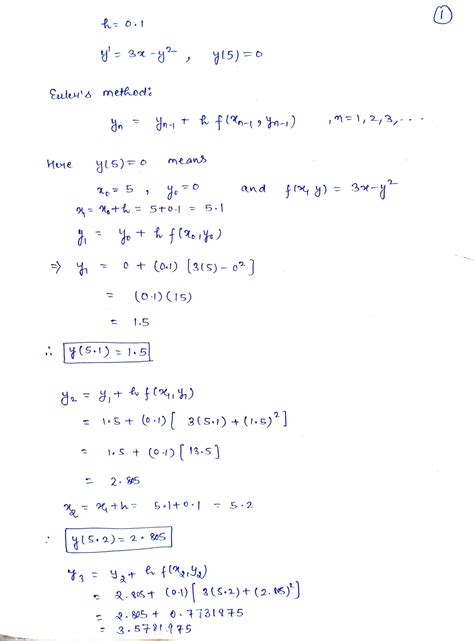 ①
h = 0.1
y' = 3x - y² , y(5) = 0
Euler's method:
yₙ = yₙ₋₁ + h f(xₙ₋₁, yₙ₋₁) , n = 1, 2, 3, ...
Here y(5) = 0 means
x₀ = 5 , y₀ = 0 and f(x, y) = 3x - y²
x₁ = x₀ + h = 5 + 0.1 = 5.1
y₁ = y₀ + h f(x₀, y₀)
⇒ y₁ = 0 + (0.1) [3(5) - 0²]
= (0.1) (15)
= 1.5
∴ y(5.1) = 1.5
y₂ = y₁ + h f(x₁, y₁)
= 1.5 + (0.1) [ 3(5.1) + (1.5)² ]
= 1.5 + (0.1) [ 13.5 ]
= 2.805
x₂ = x₁ + h = 5.1 + 0.1 = 5.2
∴ y(5.2) = 2.805
y₃ = y₂ + h f(x₂, y₂)
= 2.805 + (0.1) [ 3(5.2) + (2.805)² ]
= 2.805 + 0.7731975
= 3.5781975